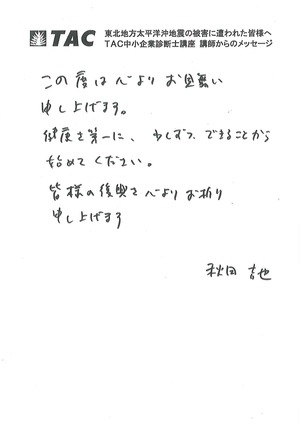 TAC
東北地方太平洋沖地震の被害に遭われた皆様へ
TAC中小企業診断士講座 講師からのメッセージ
この度は心よりお見舞い
申し上げます。
健康を第一に、少しずつできることから
始めてください。
皆様の復興を心よりお祈り
申し上げます
秋田 吉也